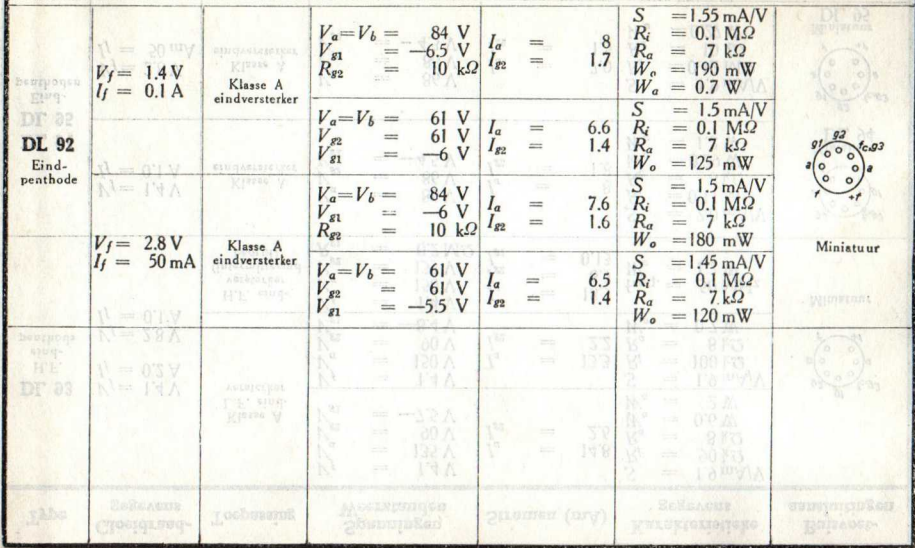 DL 92
Eind-
penthode
V_f = 1.4 V
I_f = 0.1 A
Klasse A
eindversterker
V_a = V_b = 84 V
V_g1 = —6.5 V
R_g2 = 10 kΩ
I_a = 8
I_g2 = 1.7
S = 1.55 mA/V
R_i = 0.1 MΩ
R_a = 7 kΩ
W_o = 190 mW
W_a = 0.7 W
V_a = V_b = 61 V
V_g2 = 61 V
V_g1 = —6 V
I_a = 6.6
I_g2 = 1.4
S = 1.5 mA/V
R_i = 0.1 MΩ
R_a = 7 kΩ
W_o = 125 mW
V_f = 2.8 V
I_f = 50 mA
Klasse A
eindversterker
V_a = V_b = 84 V
V_g1 = —6 V
R_g2 = 10 kΩ
I_a = 7.6
I_g2 = 1.6
S = 1.5 mA/V
R_i = 0.1 MΩ
R_a = 7 kΩ
W_o = 180 mW
V_a = V_b = 61 V
V_g2 = 61 V
V_g1 = —5.5 V
I_a = 6.5
I_g2 = 1.4
S = 1.45 mA/V
R_i = 0.1 MΩ
R_a = 7.kΩ
W_o = 120 mW
g2
g1 f,c,g3
a a
f +f
Miniatuur